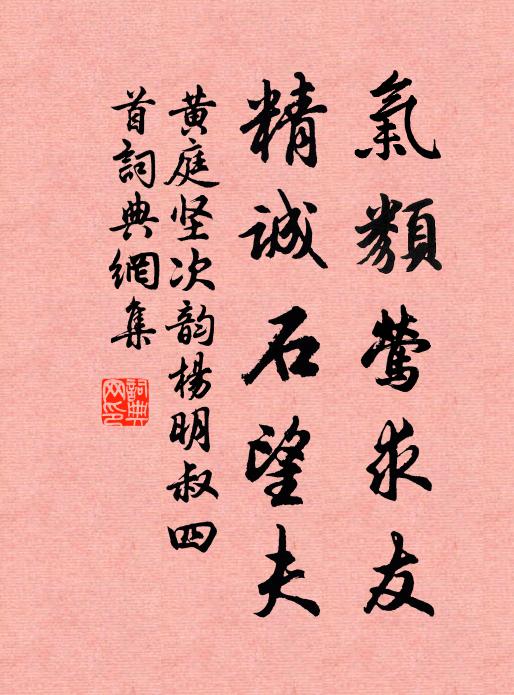 氣類鶯求友
精誠石望夫
黄庭坚次韵楊明叔四
首詞典網集
詞典網印